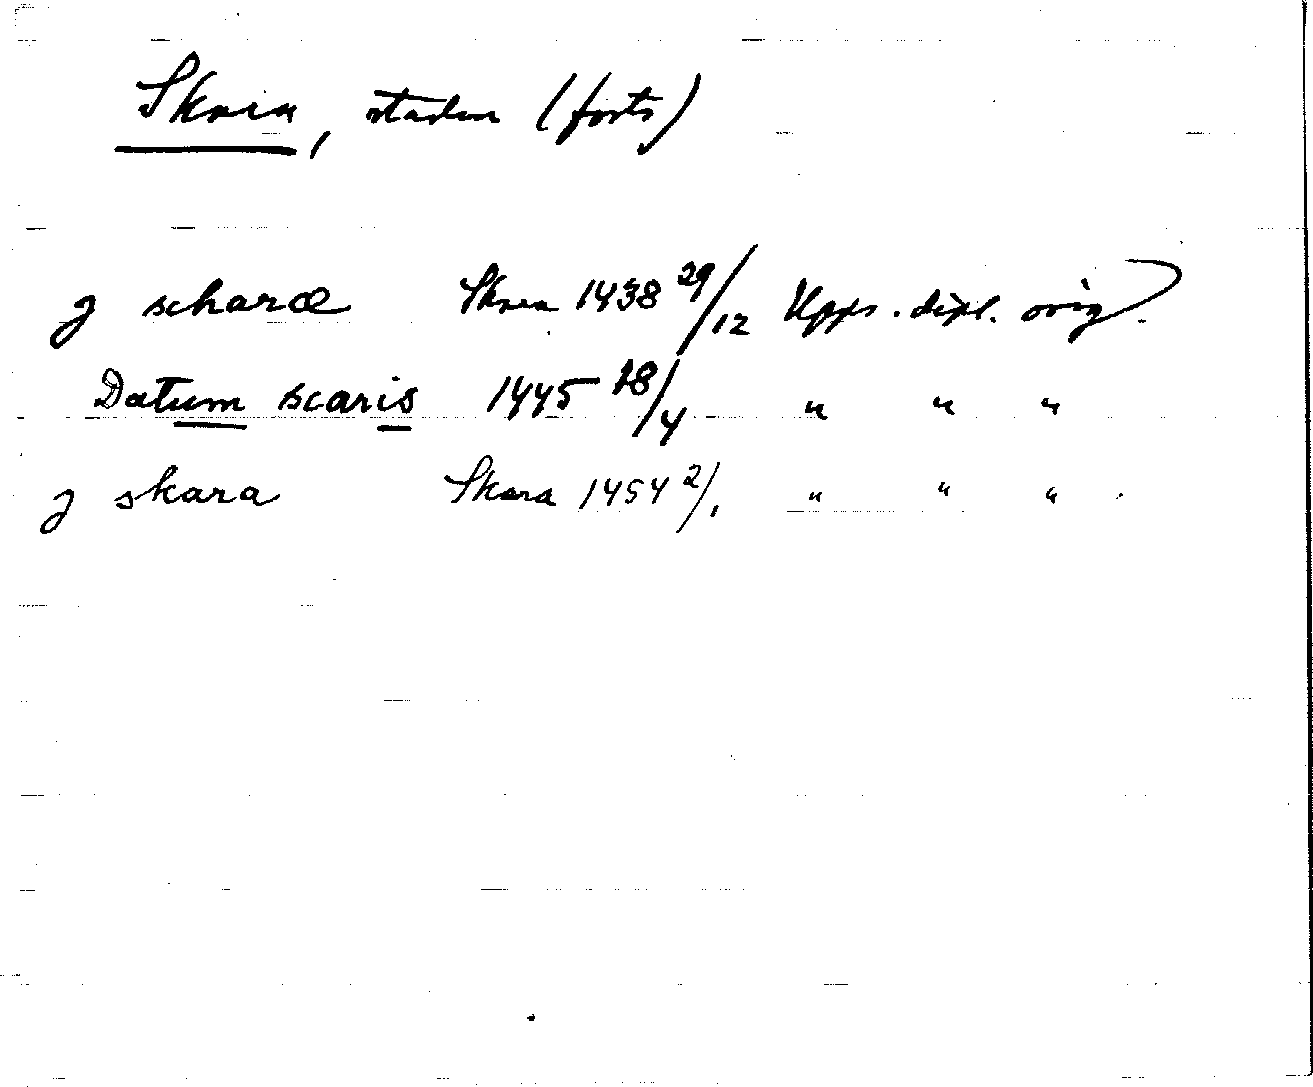 Skara, staden (forts)
j scharæ Skara 1438 29/12 Upps. dipl. orig.
Datum scaris 1445 18/4 " " "
j skara Skara 1454 2/1 " " "